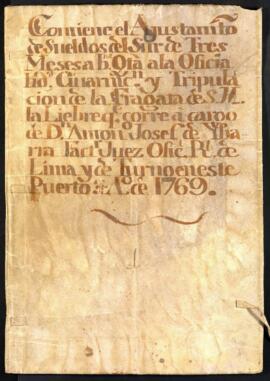 Contiene el Ajustam.to
de Sueldos del Sùr de Tres
Meses ab. Ota a la Oficia
lid.d Guarnic.n y Tripula
cion de la Fragata de S. M.
la Liebre q.e corre à cargo
de D.n Antonio Josef de Yba
rra Fact.r Juez Ofic.l R.l de
Lima y de Turno en este
Puerto A.o de 1769.